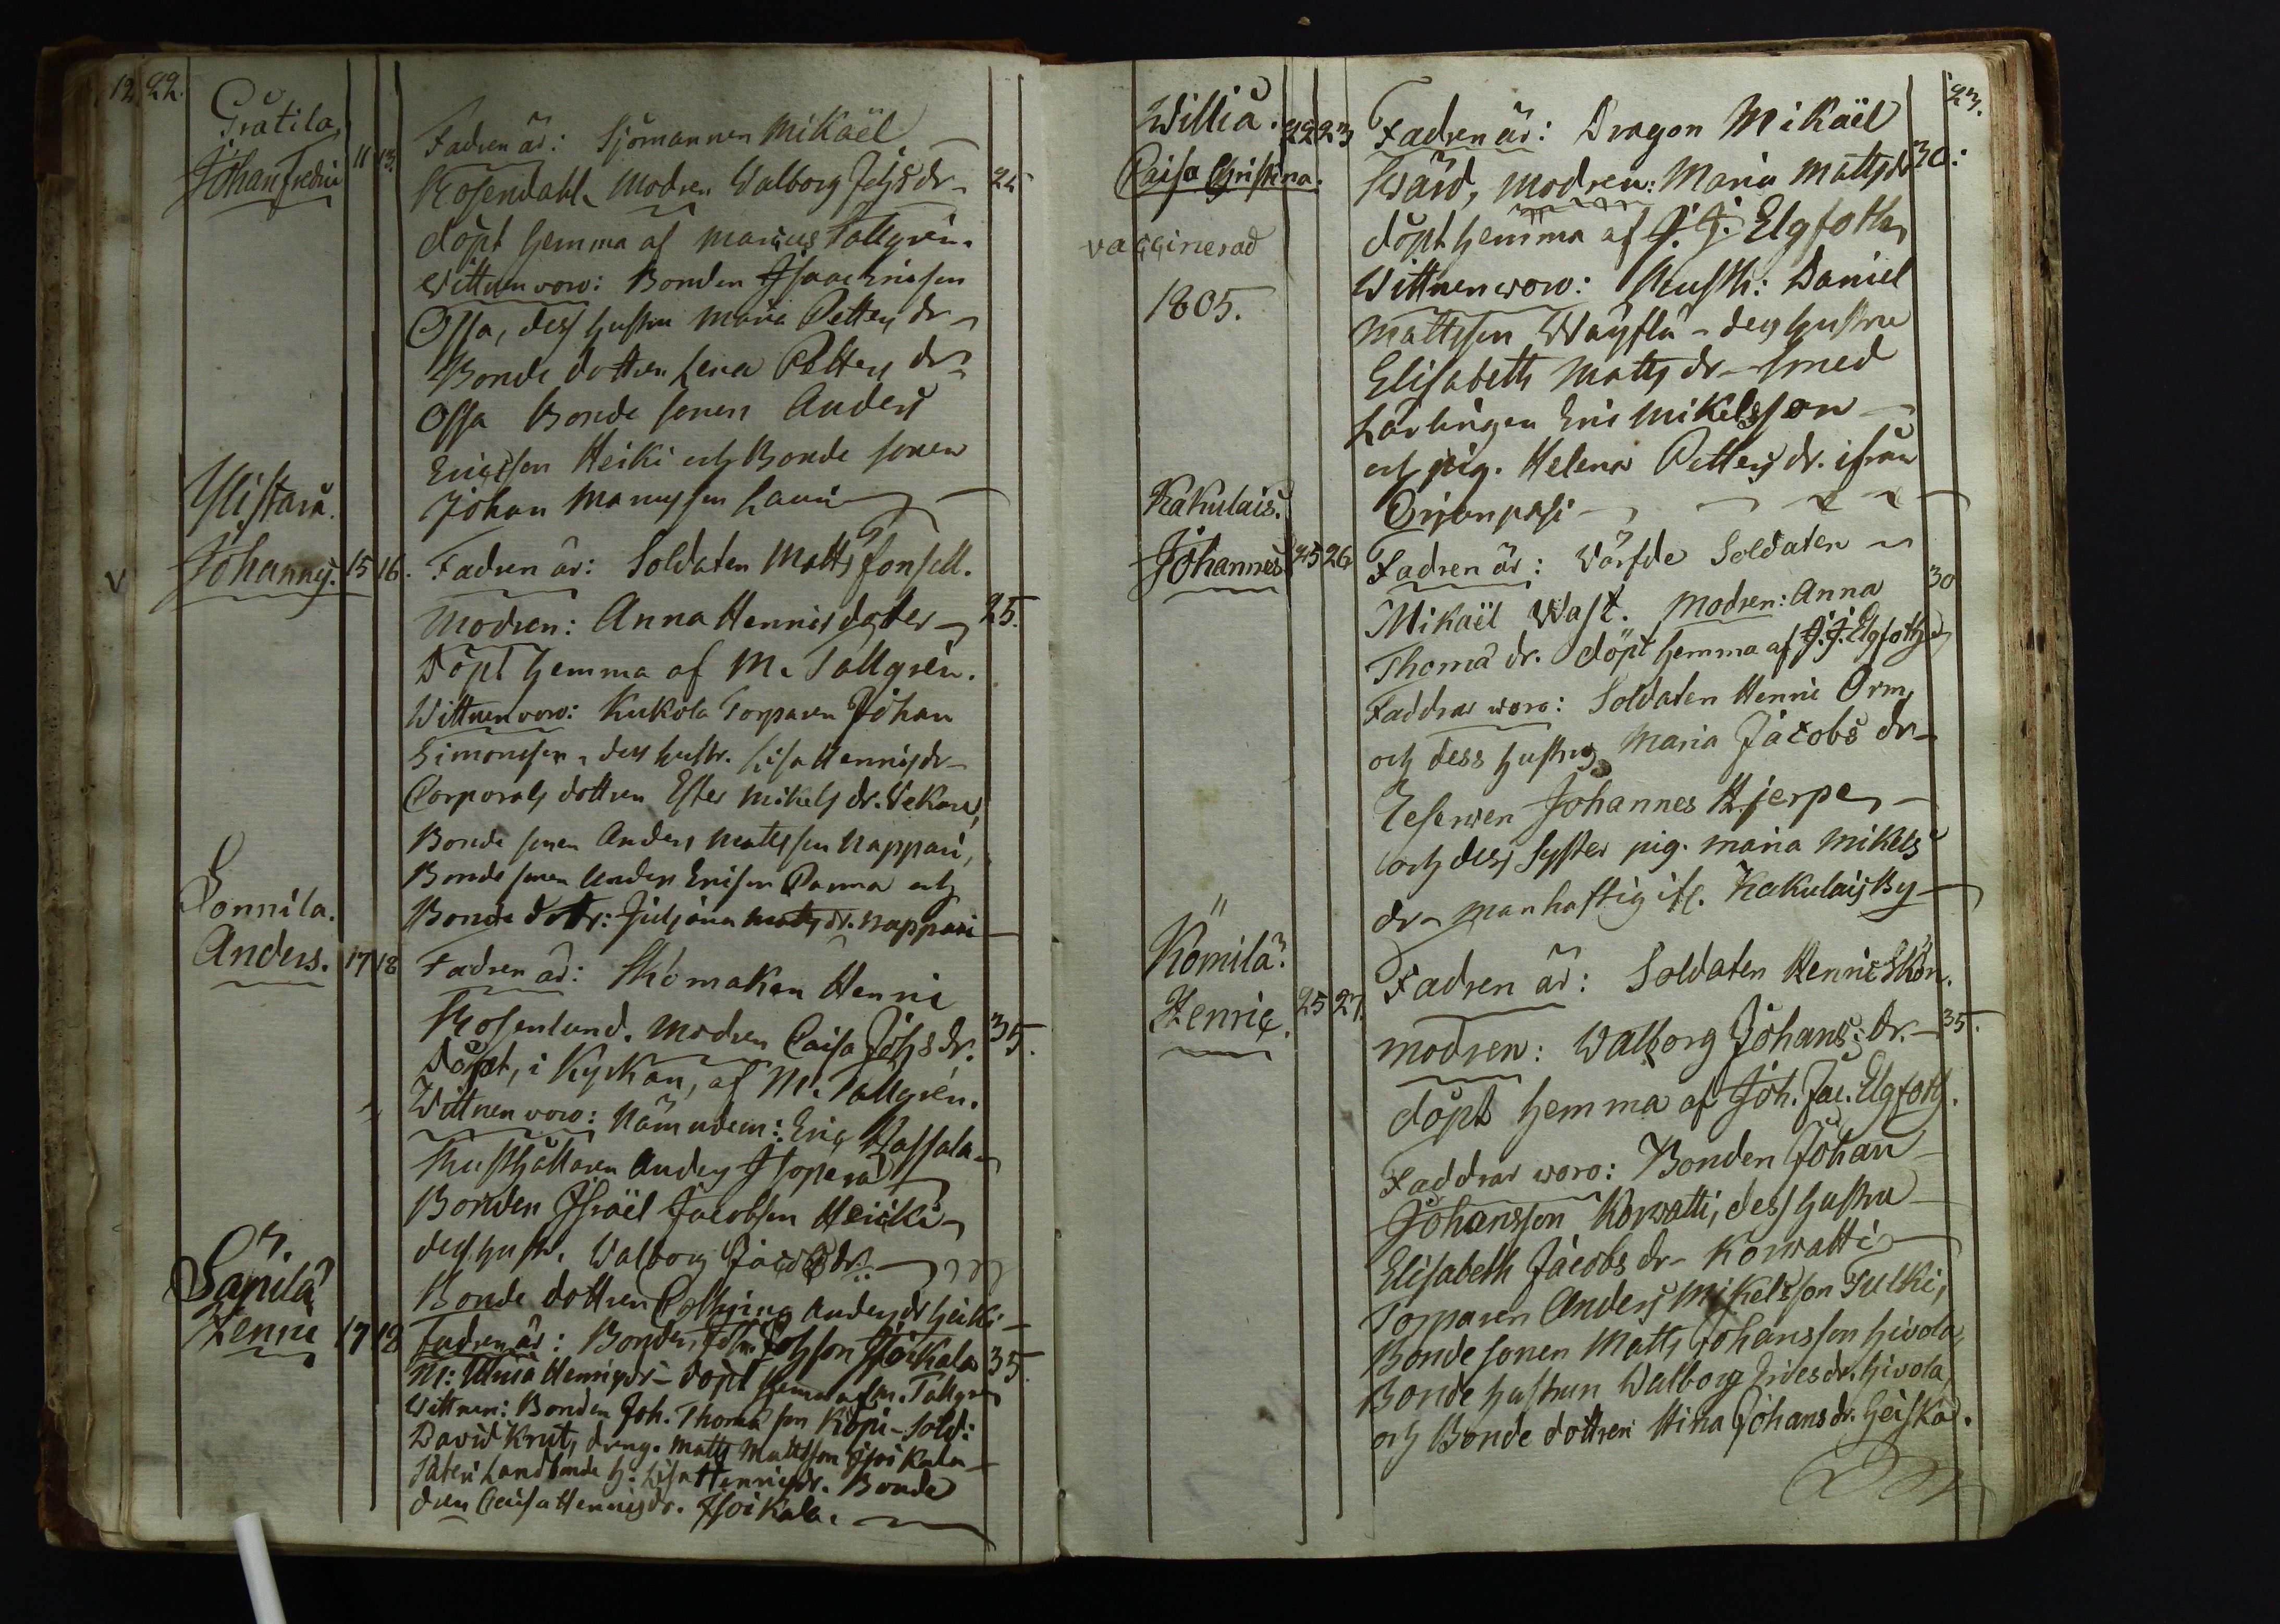 12 22.
Gråtila,
Johan Fredric 11 13. Fadren är: Sjömannen Mikaël
Rosendahl. Modren Walborg Johsdr 25
döpt hemma af Marcus Tallgrén.
Wittnen woro: Bonden Isaac Ericsson
Ossa, dess hustru Maria Petters dr
Bonde dottren Lena Petters dr
Ossa Bonde sonen Anders
Ericsson Heiki och Bonde sonen
Johan Manusson Lauri
Ylistara.
Johannes. 15 16. Fadren är: Soldaten Matts Fonsell.
Modren: Anna Henricsdoter 25.
Döpt hemma af M. Tallgrén.
Wittnen woro: Kukola Torparen Johan
Simonsson, dess hustr. Lisa Henricsdr
Corporals dottren Ester Mikels dr. Wekara,
Bonde sonen Anders Mattsson Nappari,
Bonde sonen Anders Ericson Panna och
Bonde dottr: Juliana Matts dr. Nappari
Sonnila.
Anders. 17 18 Fadren är: Skomakan Henric
Rosenlund. Modren Caisa Johs dr. 35.
Döpt, i Kyrkan, af M. Tallgrén.
Wittnen woro: Nämndem: Eric Rassala
Rusthållaren Anders Isopera
Bonden Israël Jacobson Heicki
dess hustr. Walborg Jacobs dr.
Bonde dottren Cathrina Anders dr Heiki
Sanila
Henric 17 18 Fadren är: Bonden Joh. Johsson Isoikala 35
M: Ulrica Henricsdr döpt hemma af M. Tallgren
Wittnen: Bonden Joh. Thomasson Köpi Sold:
David Krut, dreng. Matts Mattsson Isoikala
Säteri Landbonde h: Lisa Henricsdr. Bonde
dren Caisa Henricsdr. Isoikala.
23.
Willia. 22 23 Fadren är: Dragon Mikaël
Caisa Christina. Swärd, Modren: Maria Mattsdr 30:
döpt hemma af J. J. Elgfoth,
vaccinerad
Wittnen woro: Rusth: Daniel
1805.
Mattsson Wäyflä dess hustru
Elisabeth Matts dr Smed
Lärlingen Eric Mikelsson
och pig. Helena Petters dr. ifrån
Orjonpäsi
Kakulais.
Johannes 25 26 Fadren är: Värfde Soldaten
Mikaël Wast. Modren: Anna 30
Thomä dr. döpt hemma af J. J. Elgfoth
Faddrar woro: Soldaten Henric Orm,
och dess hustru Maria Jacobs dr
Reserven Johannes Hjerpe,
och dess Syster pig. Maria Mikels
dr manhaftig ifr. Kakulais By
Kömilä.
Henric. 25 27. Fadren är: Soldaten Henric Skön.
Modren: Walborg Johans: dr. 35.
döpt hemma af Joh. Jac. Elgfoth.
Faddrar woro: Bonden Johan
Johansson Korwatti, dess hustru
Elisabeth Jacobs dr Korwatti
Torparen Anders Mikelsson Tulki,
Bonde sonen Matts Johansson hivola,
Bonde hustrun Walborg Erics dr. hivola,
och Bonde dottren Stina Johans dr. heiska.